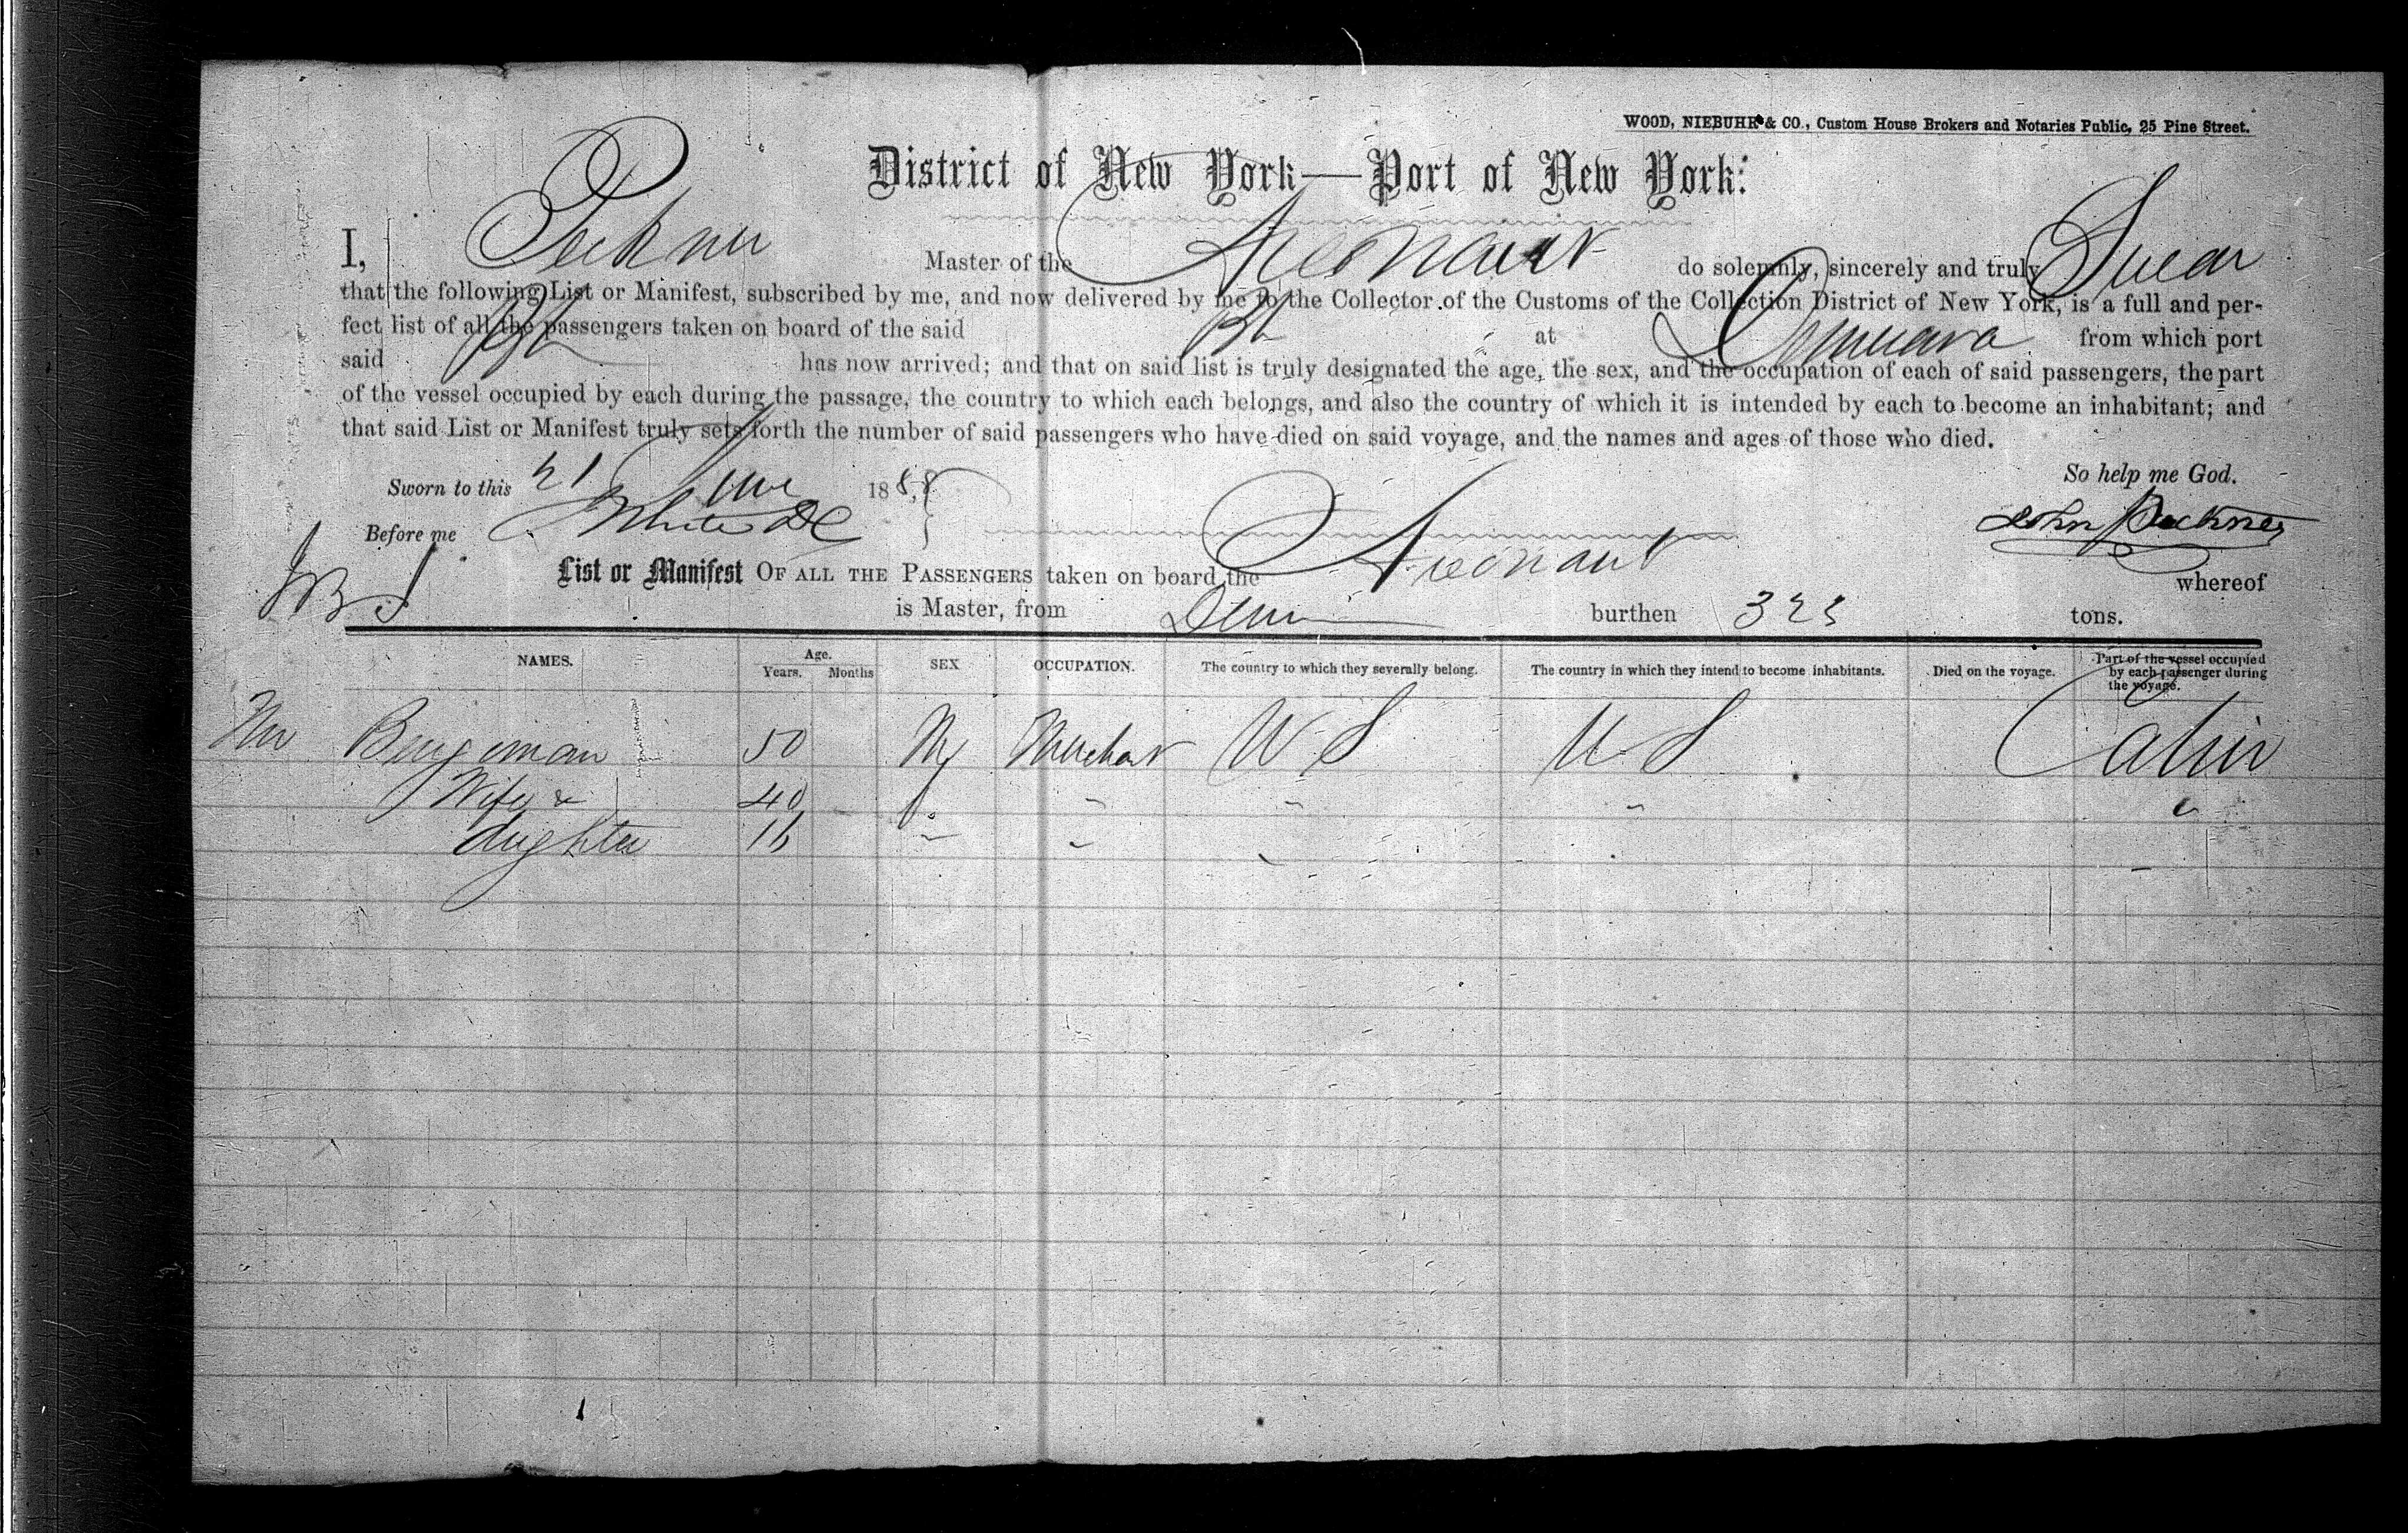 WOOD, NIEBUHR & CO., Custom House Brokers and Notaries Public, 25 Pine Street.
District of New York—Port of New York:
I, Peckner Master of the Aeronaut do solemnly, sincerely and truly Swear
that the following List or Manifest, subscribed by me, and now delivered by me to the Collector of the Customs of the Collection District of New York, is a full and per-
fect list of all the passengers taken on board of the said Bk at Demerara from which port
said Bk has now arrived; and that on said list is truly designated the age, the sex, and the occupation of each of said passengers, the part
of the vessel occupied by each during the passage, the country to which each belongs, and also the country of which it is intended by each to become an inhabitant; and
that said List or Manifest truly sets forth the number of said passengers who have died on said voyage, and the names and ages of those who died.
Sworn to this 21 June 188 So help me God.
Before me White DC John Peckner
List or Manifest OF ALL THE PASSENGERS taken on board the Aeronaut whereof
is Master, from Dem burthen 323 tons.
NAMES. Age. Years. Months SEX OCCUPATION. The country to which they severally belong. The country in which they intend to become inhabitants. Died on the voyage. Part of the vessel occupied by each passenger during the voyage.
50 M Merchant U S U S Cabin
Wife & 40 f " " " "
dughter 16 " " "